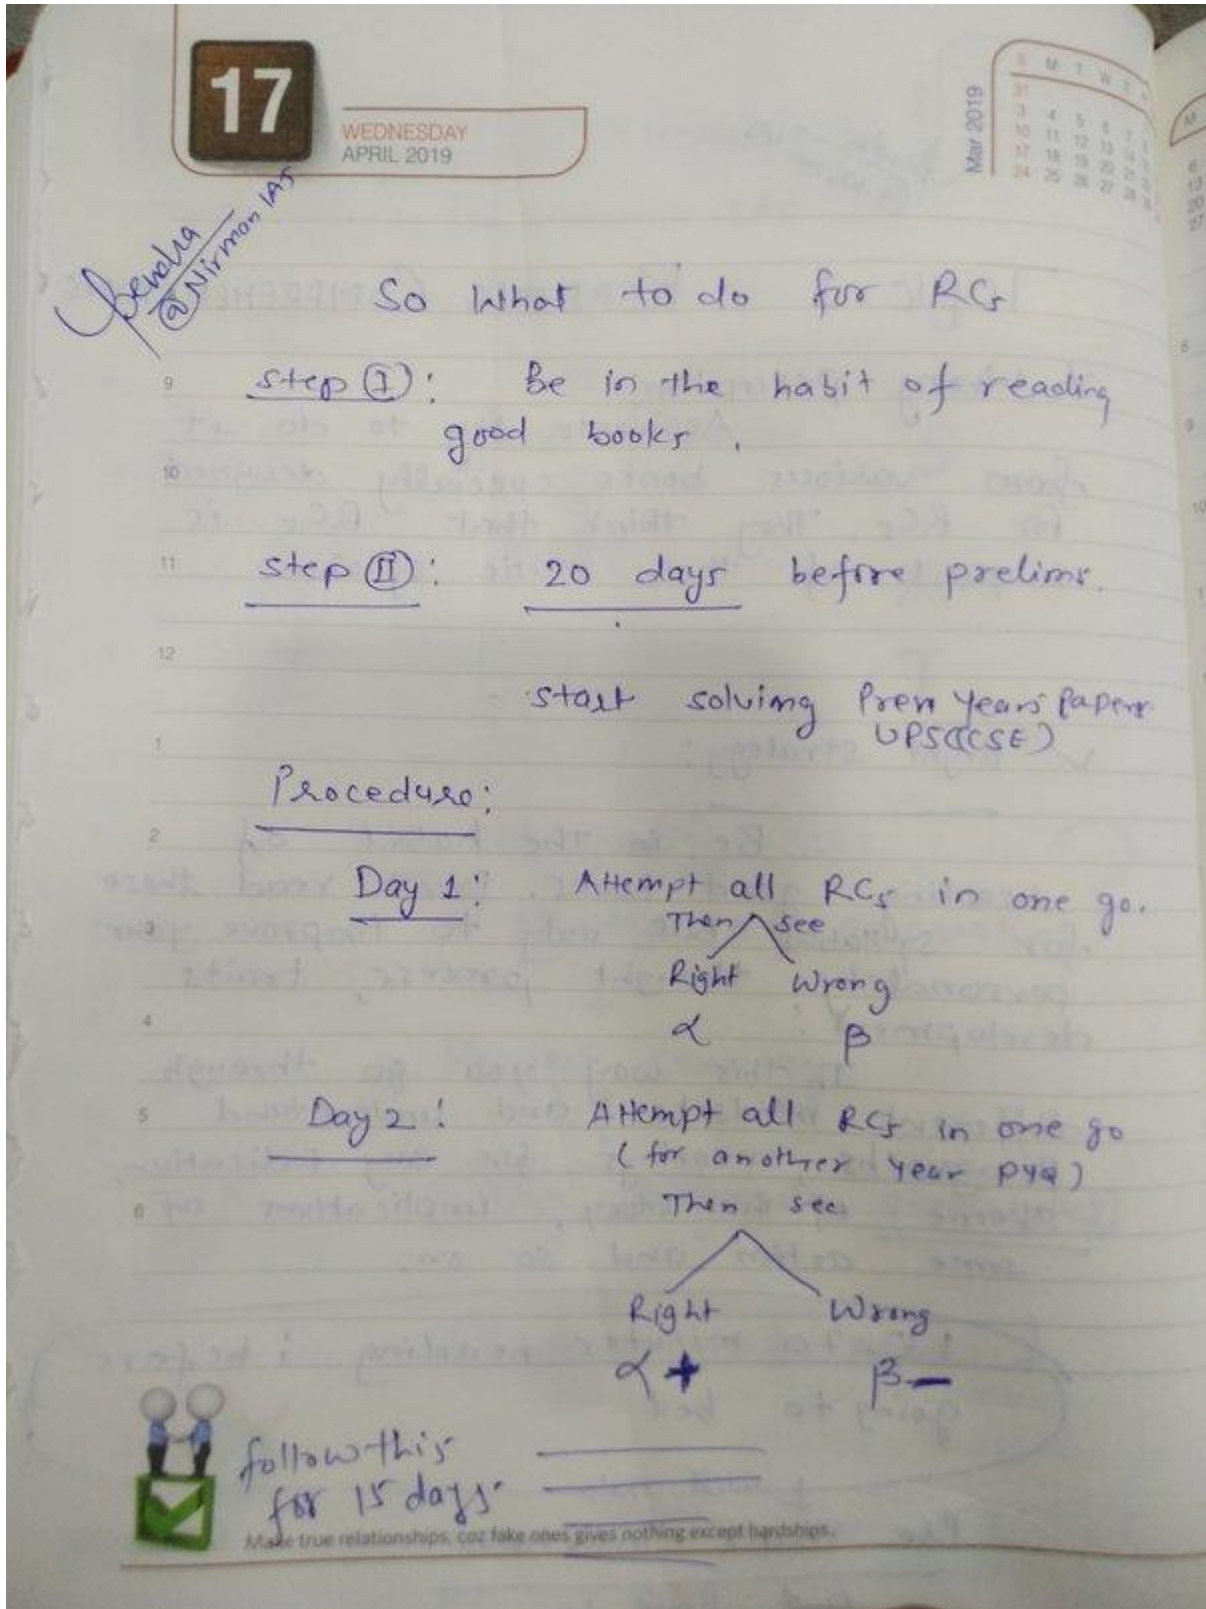 17
WEDNESDAY
APRIL 2019
Mar 2019
S M T W T
31
3 4 5 6 7
10 11 12 13 14
17 18 19 20 21
24 25 26 27 28
@Nirman IAS
So What to do for RCs
9
step I : Be in the habit of reading
good books .
10
11
step II : 20 days before prelims.
12
start solving Prev Years Papers
UPSC(CSE)
1
Procedure:
2
Day 1: Attempt all RCs in one go.
3
Then see
Right Wrong
4
α β
5
Day 2: Attempt all RCs in one go
(for another year PYQ)
6
Then see
Right Wrong
α + β -
follow this
for 15 days
Make true relationships, coz fake ones gives nothing except hardships.